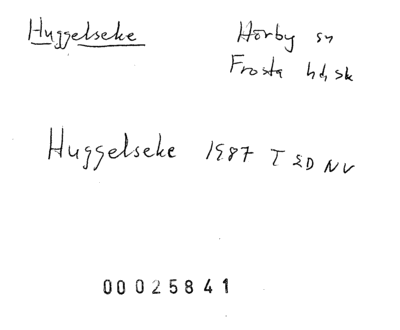 Huggelseke
Hörby sn
Frosta hd, sk
Huggelseke 1987 T 2D NV
00025841